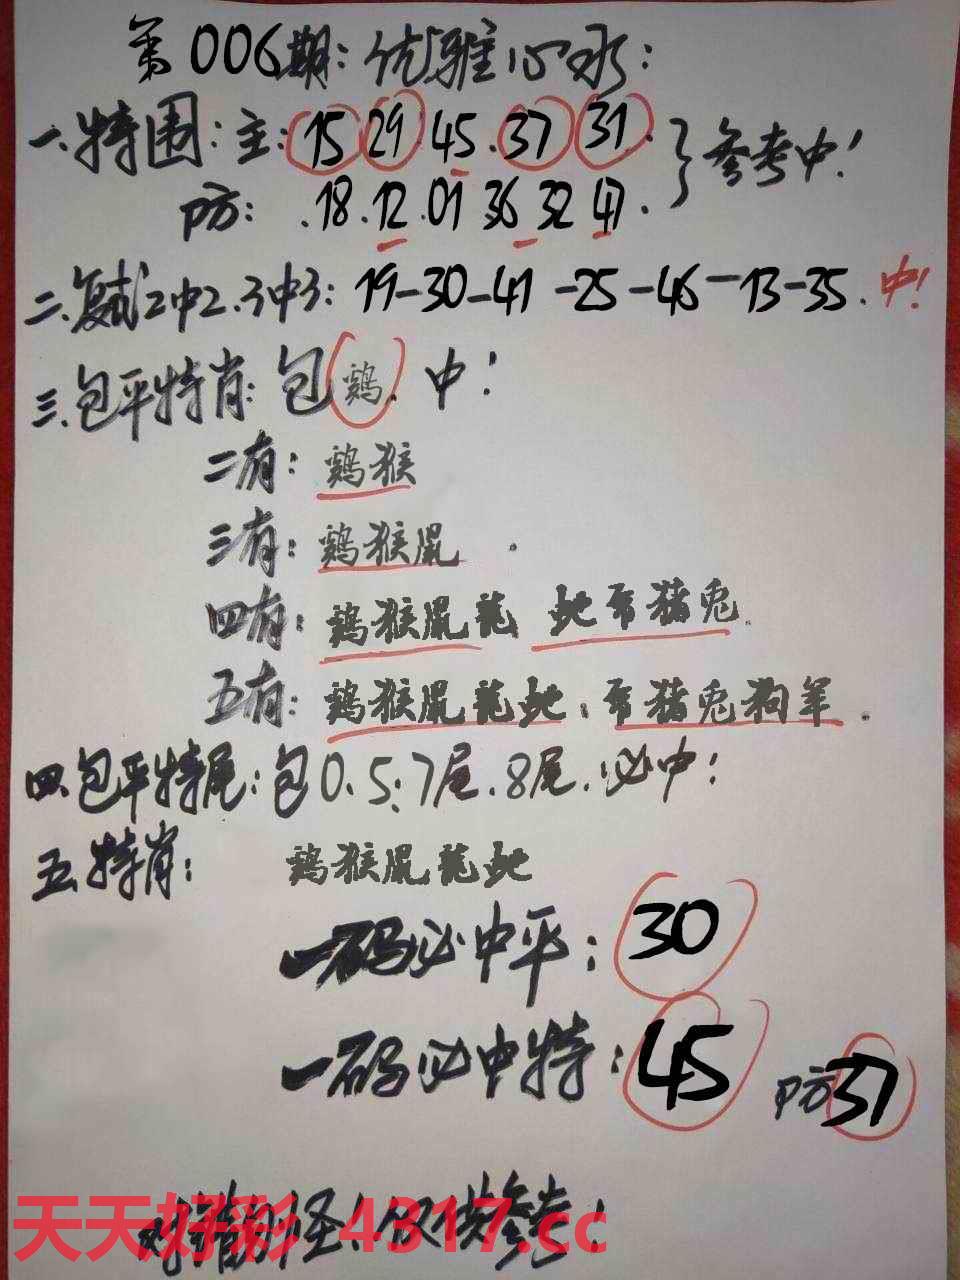 第006期:优雅心水:
一.特围:主:15 29 45.37 31.}参考中!
防:.18.12.01 36 32 47.
二.复式2中2.3中3:19-30-41-25-46-13-35.中!
三.包平特肖:包鸡.中!
二有:鸡猴
三有:鸡猴鼠.
四有:鸡猴鼠龍 蛇马猪兔.
五有:鸡猴鼠龍蛇.马猪兔狗羊.
四.包平特尾:包0.5.7尾.8尾.必中!
五.特肖:鸡猴鼠龍蛇
一码必中平:30
一码必中特:45 防37
对错勿怪!仅供参考!
天天好彩 4317.cc